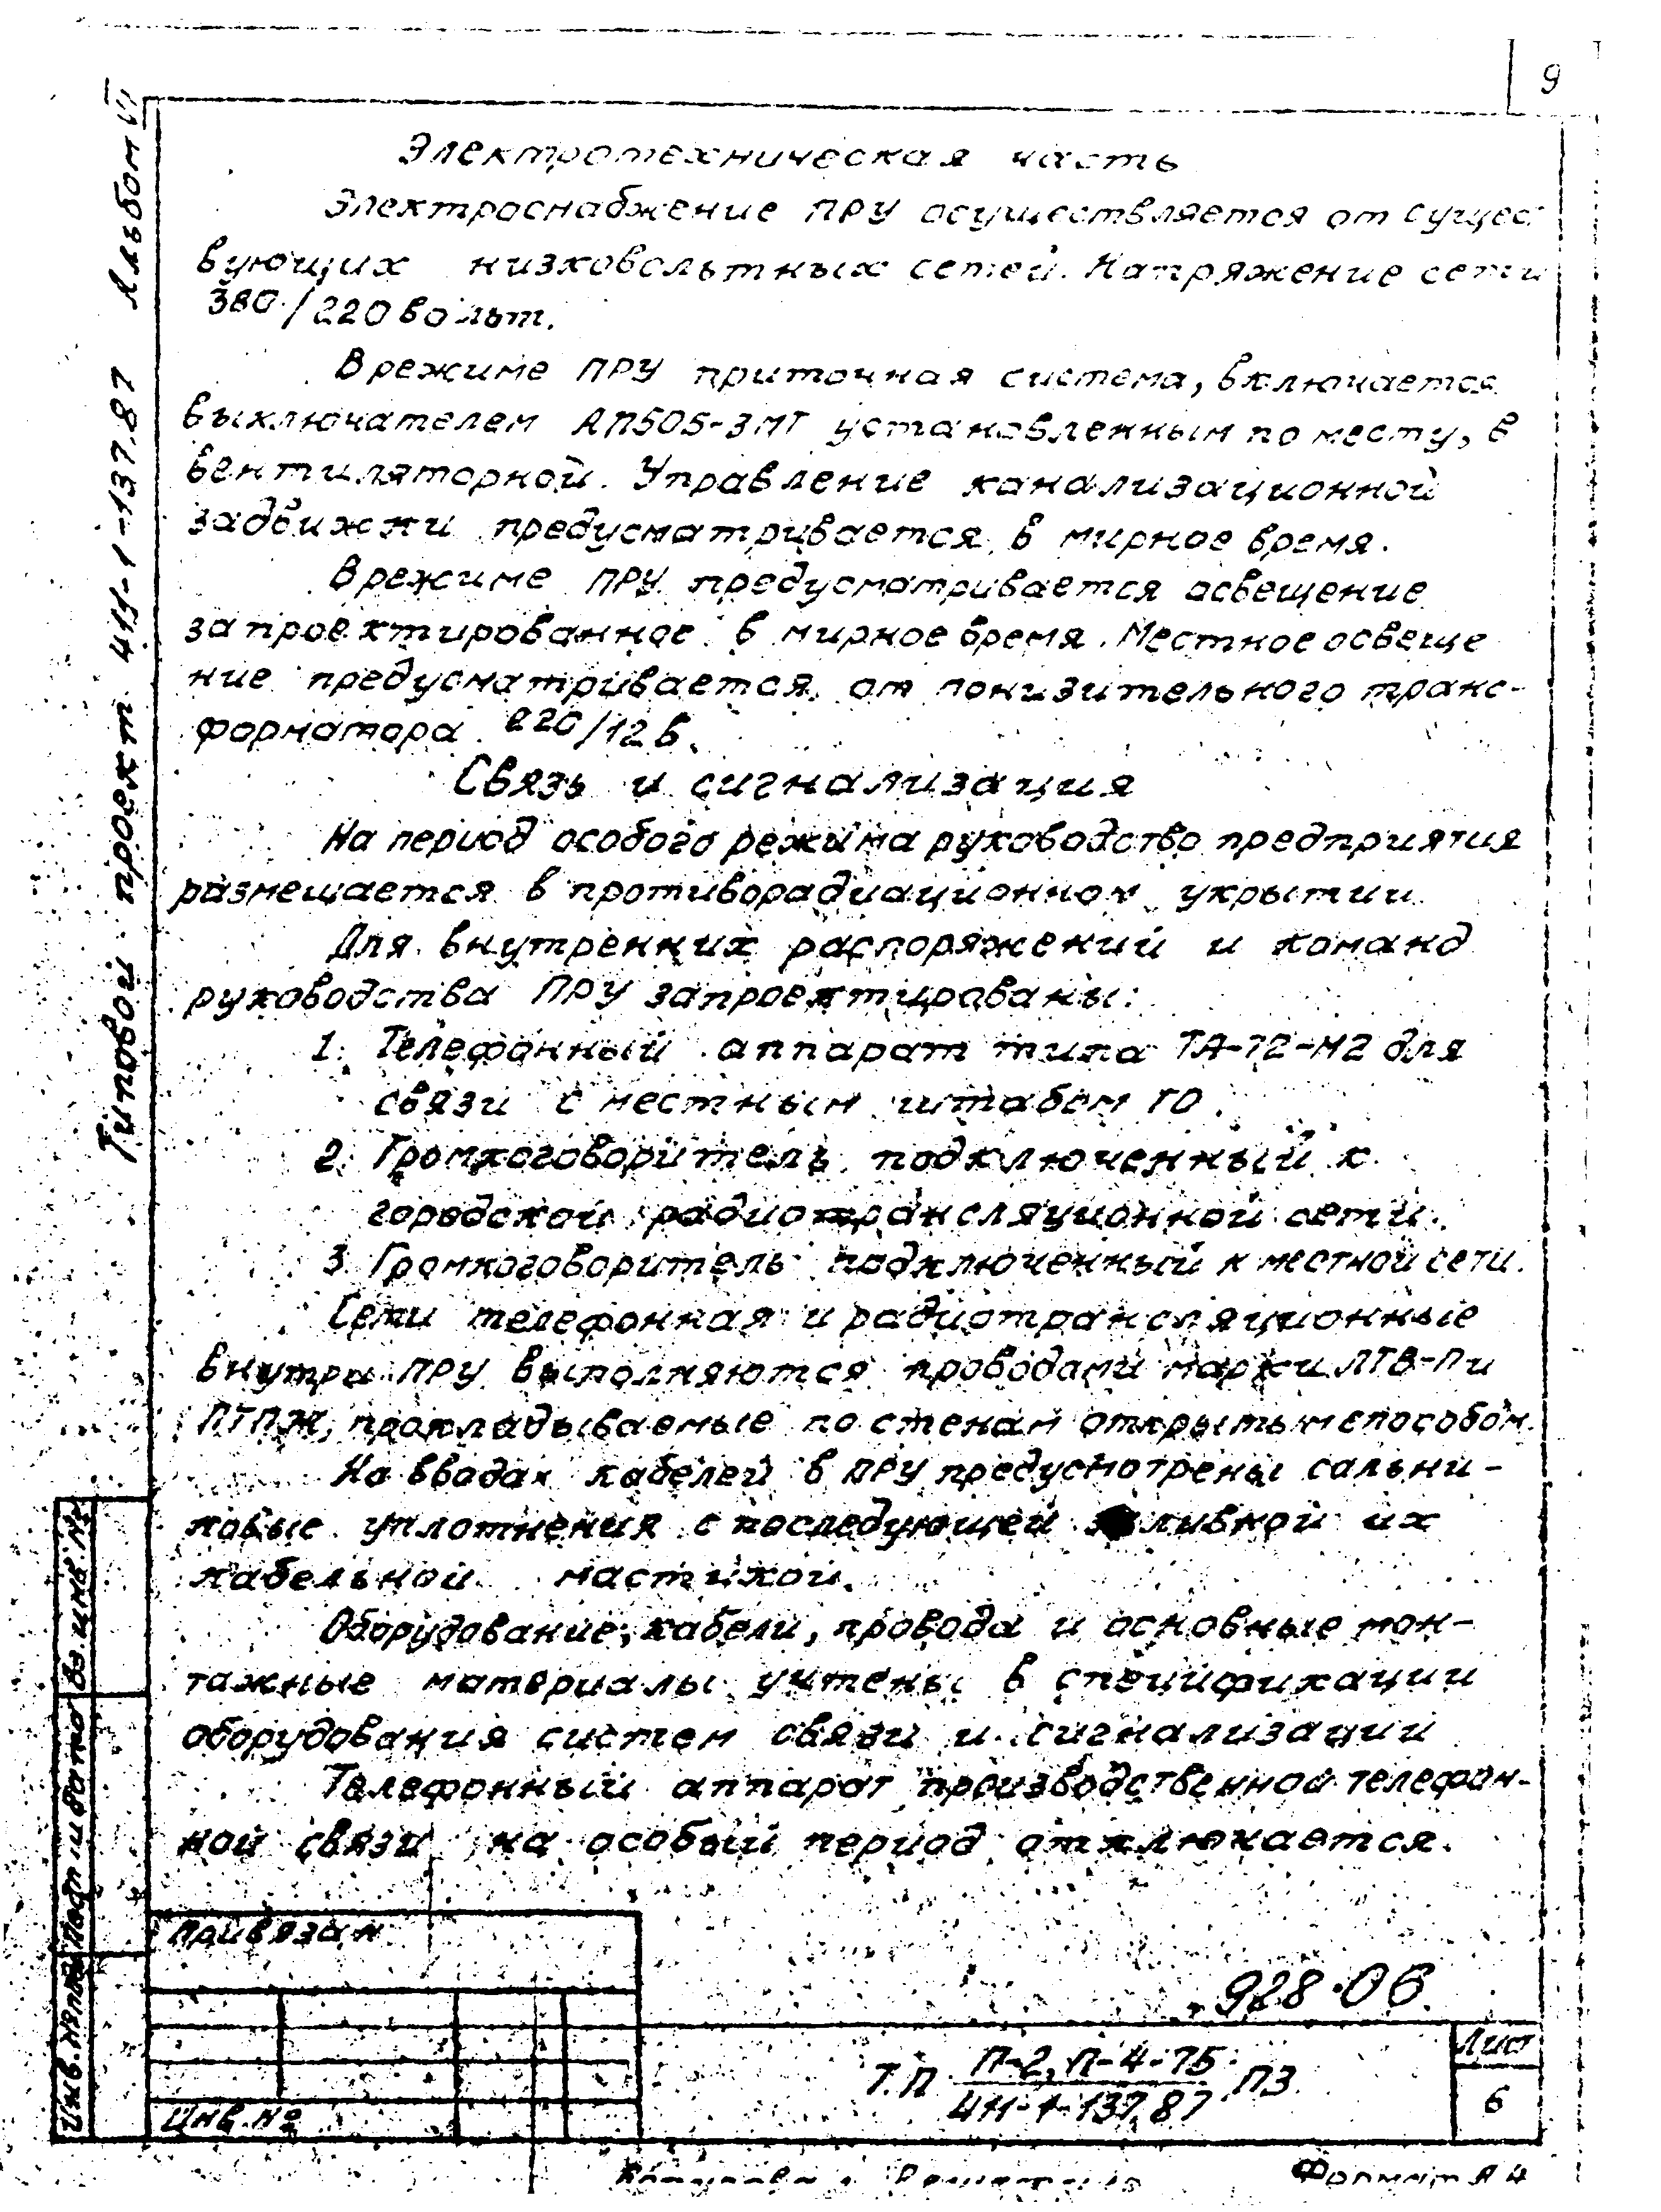 9
Альбом VI
Типовой проект 411-1-137.87
Электротехническая часть
Электроснабжение ПРУ осуществляется от сущес
вующих низковольтных сетей. Напряжение сети
380/220 вольт.
В режиме ПРУ приточная система, включается
выключателем АП505-3МТ установленным по месту, в
вентиляторной. Управление канализационной
задвижки предусматривается в мирное время.
В режиме ПРУ предусматривается освещение
запроектированное в мирное время. Местное освеще
ние предусматривается от понизительного транс-
форматора 220/12 в.
Связь и сигнализация
На период особого режима руководство предприятия
размещается в противорадиационном укрытии
Для внутренних распоряжений и команд
руководства ПРУ запроектированы:
1. Телефонный аппарат типа ТА-72-М2 для
связи с местным штабом ГО.
2. Громкоговоритель подключенный к
городской радиотрансляционной сети.
3. Громкоговоритель подключенный к местной сети.
Сети телефонная и радиотрансляционные
внутри ПРУ выполняются проводами марки ЛТВ-П и
ПТПЖ, прокладываемые по стенам открытым способом.
На вводах кабелей в ПРУ предусмотрены сальни-
ковые уплотнения с последующей заливкой их
кабельной мастикой.
Оборудование, кабели, провода и основные мон-
тажные материалы учтены в спецификации
оборудования систем связи и сигнализации
Телефонный аппарат производственной телефон-
ной связи на особый период отключается.
Вз. инв. №
Подп и дата
Инв. № подл
Привязан
Инв. №
928-06
Т.П. П-2, П-4-75 ПЗ
411-1-137.87
Лист
6
Формат А4